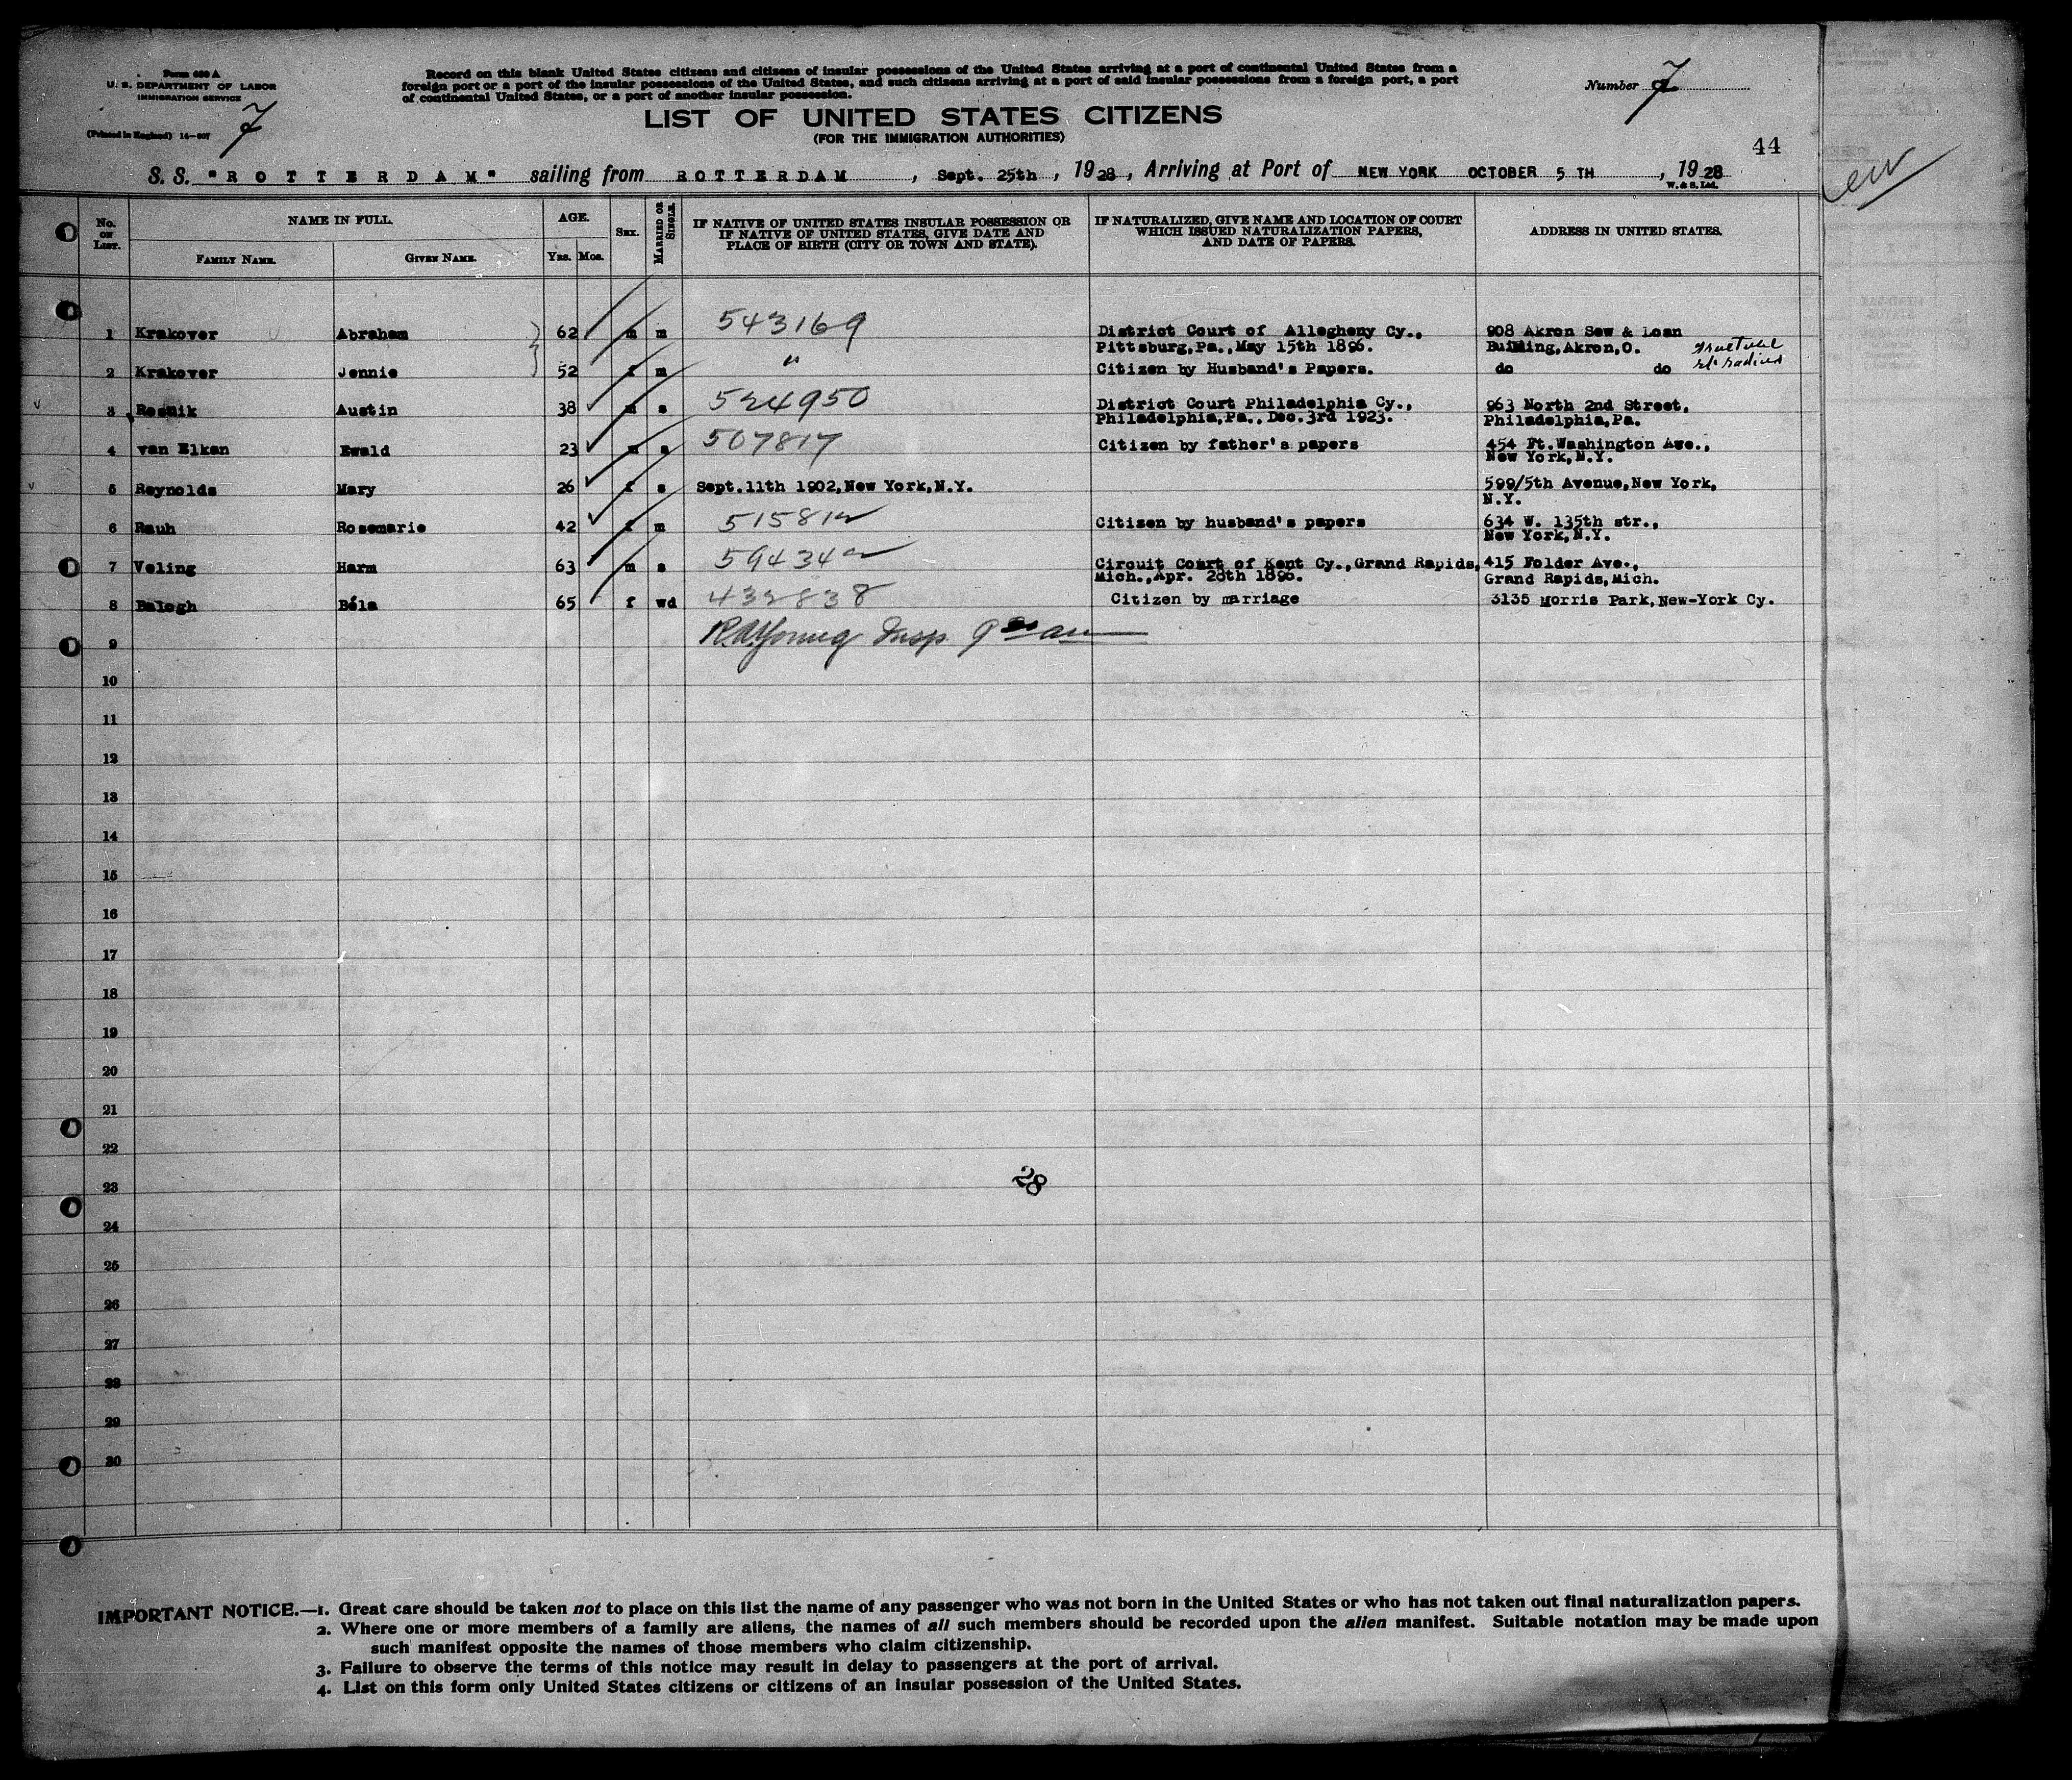 Form 630 A
U. S. DEPARTMENT OF LABOR
IMMIGRATION SERVICE
(Printed in England) 14—607
7
Record on this blank United States citizens and citizens of insular possessions of the United States arriving at a port of continental United States from a
foreign port or a port of the insular possessions of the United States, and such citizens arriving at a port of said insular possessions from a foreign port, a port
of continental United States, or a port of another insular possession.
Number 7
LIST OF UNITED STATES CITIZENS
(FOR THE IMMIGRATION AUTHORITIES)
44
S. S. "ROTTERDAM" sailing from ROTTERDAM, Sept. 25th, 1928, Arriving at Port of NEW YORK OCTOBER 5 TH, 1928
W. & S. Ltd.
No. on List. NAME IN FULL. AGE. Sex. Married or Single. IF NATIVE OF UNITED STATES INSULAR POSSESSION OR IF NATIVE OF UNITED STATES, GIVE DATE AND PLACE OF BIRTH (CITY OR TOWN AND STATE). IF NATURALIZED, GIVE NAME AND LOCATION OF COURT WHICH ISSUED NATURALIZATION PAPERS, AND DATE OF PAPERS. ADDRESS IN UNITED STATES.
Family Name. Given Name. Yrs. Mos.
1 Krakover Abraham 62 m m 543169 District Court of Allegheny Cy., 908 Akron Sew & Loan
Pittsburg,Pa.,May 15th 1896. Building,Akron,O.
2 Krakover Jennie 52 f m " Citizen by Husband's Papers. do do
3 Resnik Austin 38 m s 524950 District Court Philadelphia Cy., 963 North 2nd Street,
Philadelphia,Pa., Dec.3rd 1923. Philadelphia,Pa.
4 van Elkan Ewald 23 m s 507817 Citizen by father's papers 454 Ft.Washington Ave.,
New York,N.Y.
5 Reynolds Mary 26 f s Sept.11th 1902,New York,N.Y. 599/5th Avenue,New York,
N.Y.
6 Rauh Rosemarie 42 f m 515812 Citizen by husband's papers 634 W. 135th str.,
New York,N.Y.
7 Veling Harm 63 m s 594342 Circuit Court of Kent Cy.,Grand Rapids, 415 Folder Ave.,
Mich.,Apr. 28th 1896. Grand Rapids,Mich.
8 Balogh Béla 65 f wd 432838 Citizen by marriage 3135 Morris Park,New-York Cy.
9 R.A. Young Insp. 9 am
10
11
12
13
14
15
16
17
18
19
20
21
22
23
28
24
25
26
27
28
29
30
IMPORTANT NOTICE.—1. Great care should be taken not to place on this list the name of any passenger who was not born in the United States or who has not taken out final naturalization papers.
2. Where one or more members of a family are aliens, the names of all such members should be recorded upon the alien manifest. Suitable notation may be made upon
such manifest opposite the names of those members who claim citizenship.
3. Failure to observe the terms of this notice may result in delay to passengers at the port of arrival.
4. List on this form only United States citizens or citizens of an insular possession of the United States.